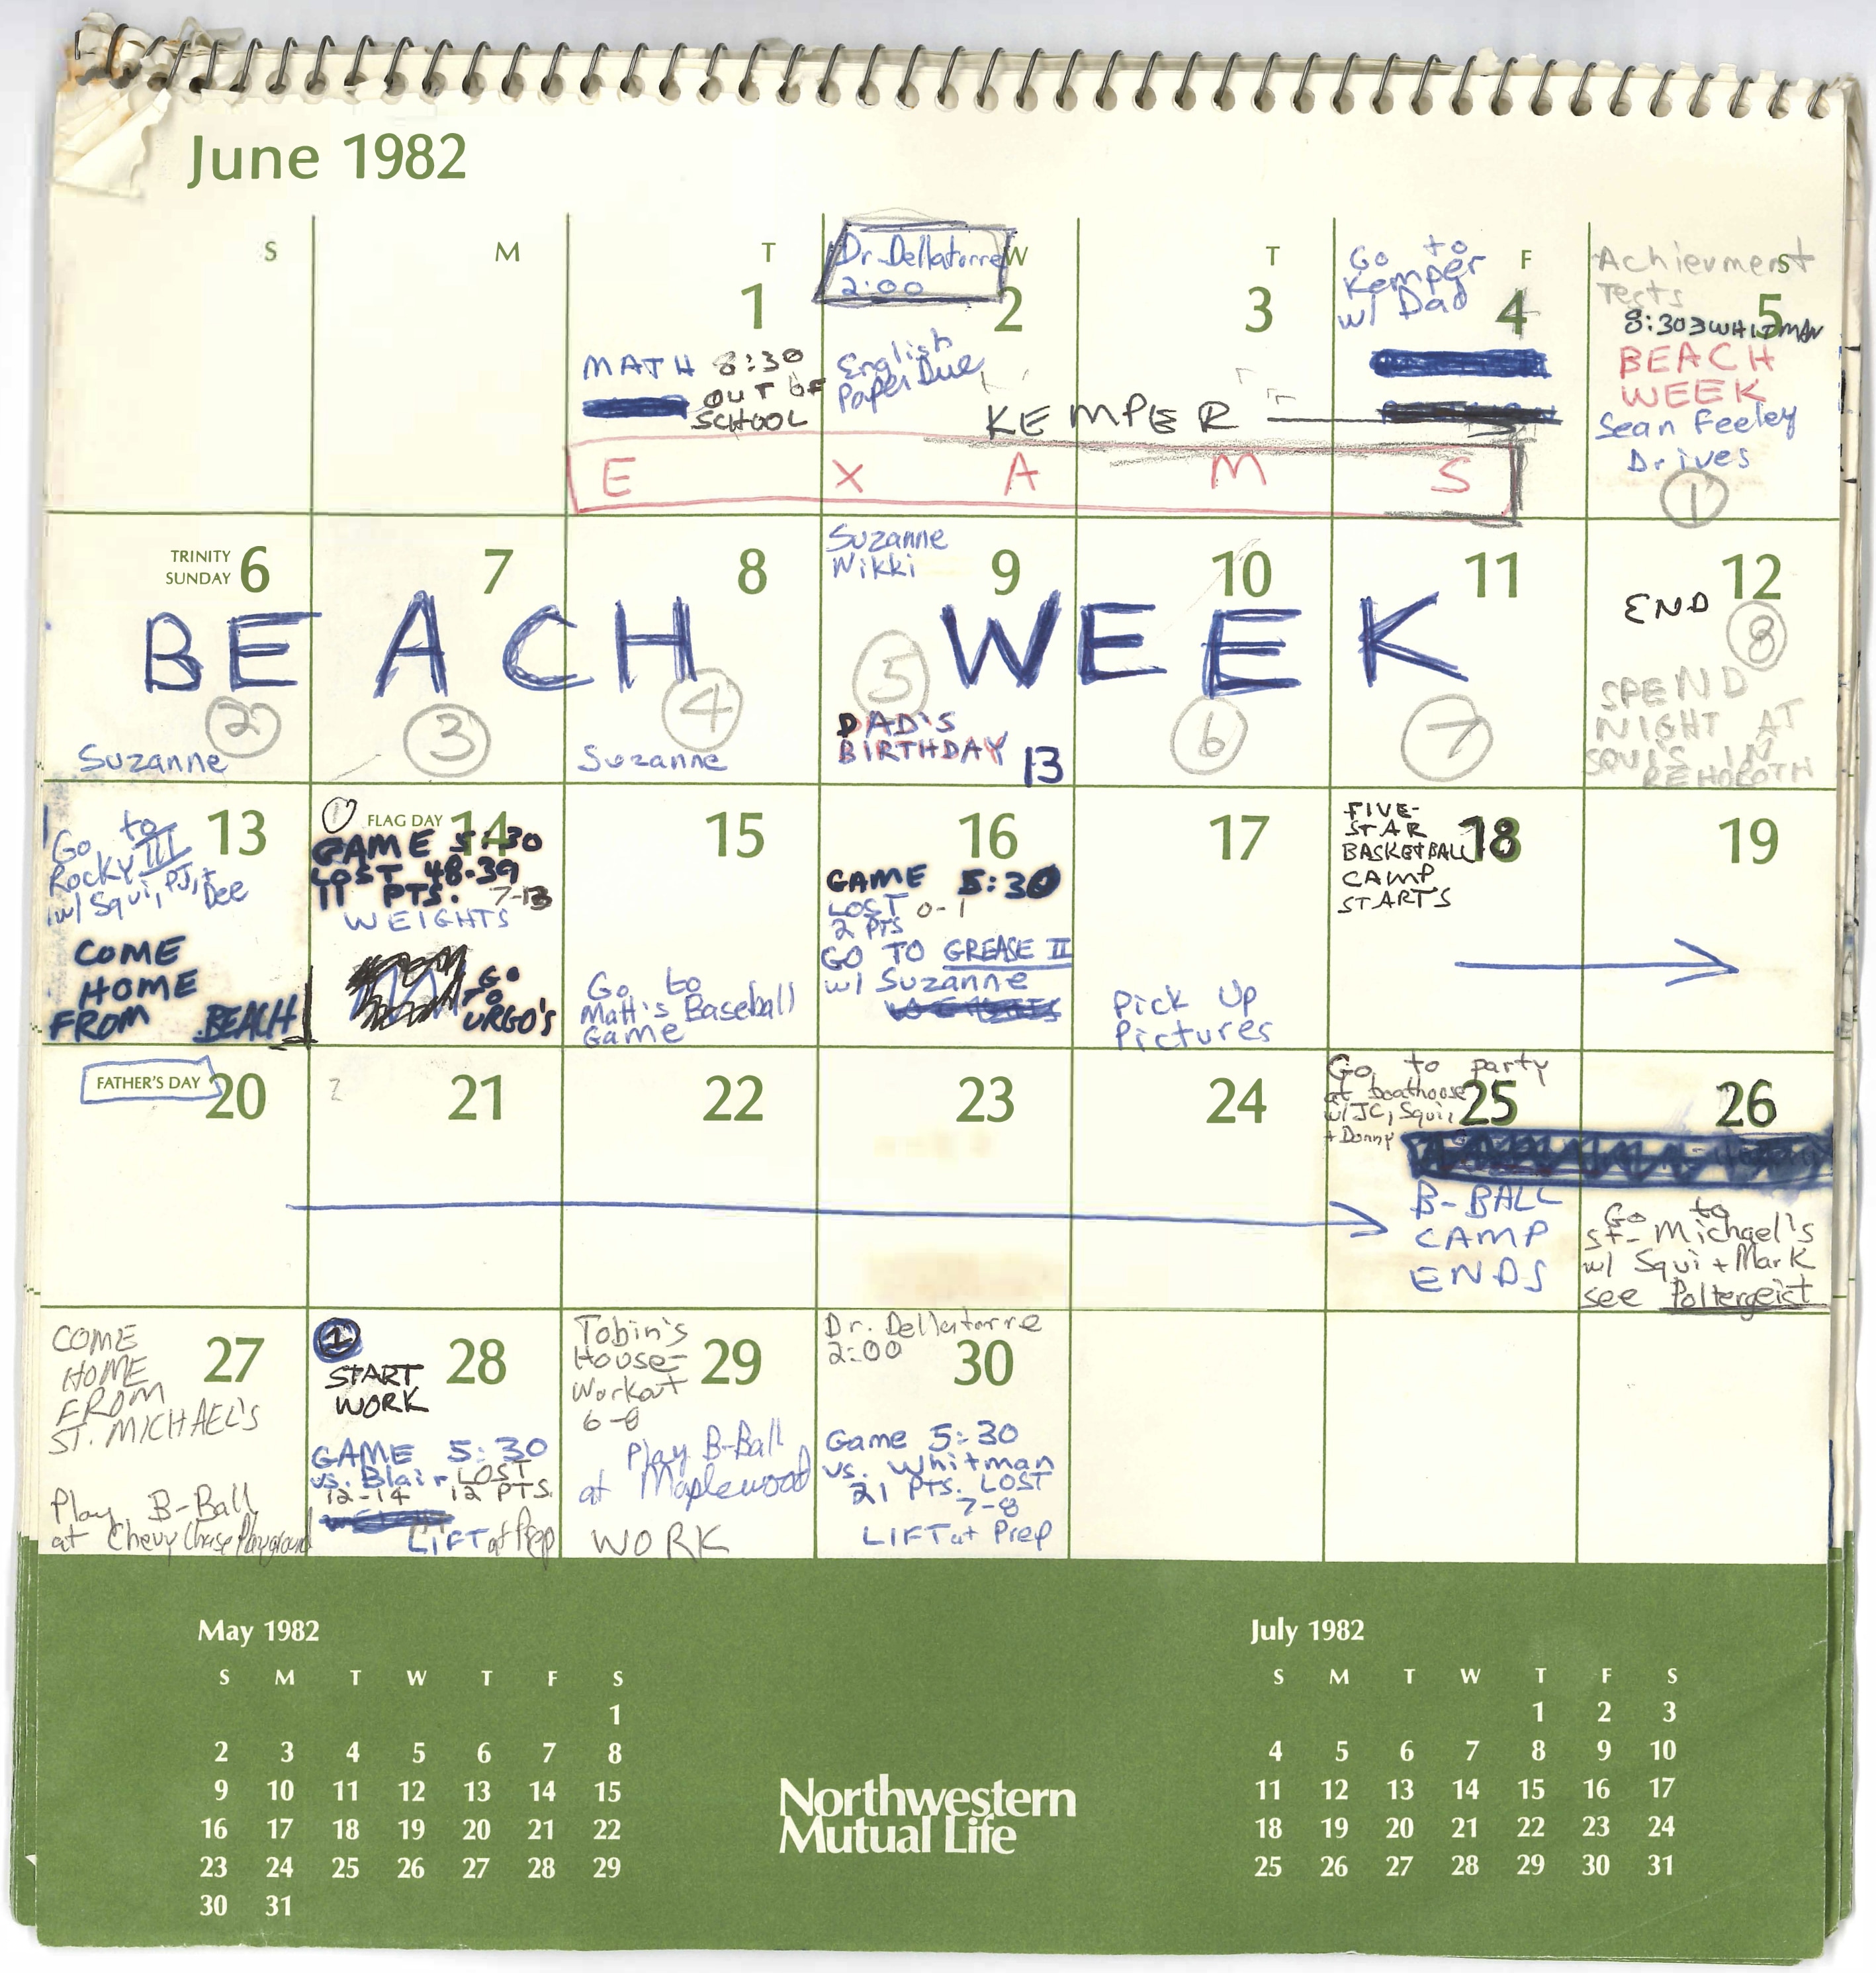 June 1982
S M T W T F S
Dr. Dellatorre
2:00
Go to
Kemper
w/ Dad
Achievment
Tests
1 2 3 4 5
8:30
MATH 8:30
OUT OF
SCHOOL
English
Paper Due
KEMPER
BEACH
WEEK
Sean Feeley
Drives
1
E X A M S
TRINITY
SUNDAY 6
7
8
Suzanne
Nikki
9
10
11
12
END
BEACH WEEK
2
Suzanne
3
4
Suzanne
5
DAD'S
BIRTHDAY
13
6
7
8
SPEND
NIGHT AT
SQUI'S IN
REHOBOTH
13
Go to
Rocky III
w/ Squi, PJ, +
Dee
COME
HOME
FROM BEACH
1
FLAG DAY 14
GAME 5:30
LOST 48-39
11 PTS. 7-13
WEIGHTS
GO
TO
URGO'S
15
Go to
Matt's Baseball
Game
16
GAME 5:30
LOST 0-1
2 PTS
GO TO GREASE II
w/ Suzanne
17
Pick Up
Pictures
18
FIVE-
STAR
BASKETBALL
CAMP
STARTS
19
FATHER'S DAY 20
2
21
22
23
24
Go to party
at boathouse
w/ JC, Squi,
+ Donny
25
B-BALL
CAMP
ENDS
26
Go to
St. Michael's
w/ Squi + Mark
see Poltergeist
27
COME
HOME
FROM
ST. MICHAEL'S
Play B-Ball
at Chevy Chase Playground
1
28
START
WORK
GAME 5:30
vs. Blair LOST
12-14 12 PTS.
LIFT at Prep
29
Tobin's
House-
Workout
6-8
Play B-Ball
at Maplewood
WORK
Dr. Dellatorre
2:00
30
Game 5:30
vs. Whitman
21 PTS. LOST
7-8
LIFT at Prep
May 1982
S M T W T F S
1
2 3 4 5 6 7 8
9 10 11 12 13 14 15
16 17 18 19 20 21 22
23 24 25 26 27 28 29
30 31
Northwestern
Mutual Life
July 1982
S M T W T F S
1 2 3
4 5 6 7 8 9 10
11 12 13 14 15 16 17
18 19 20 21 22 23 24
25 26 27 28 29 30 31